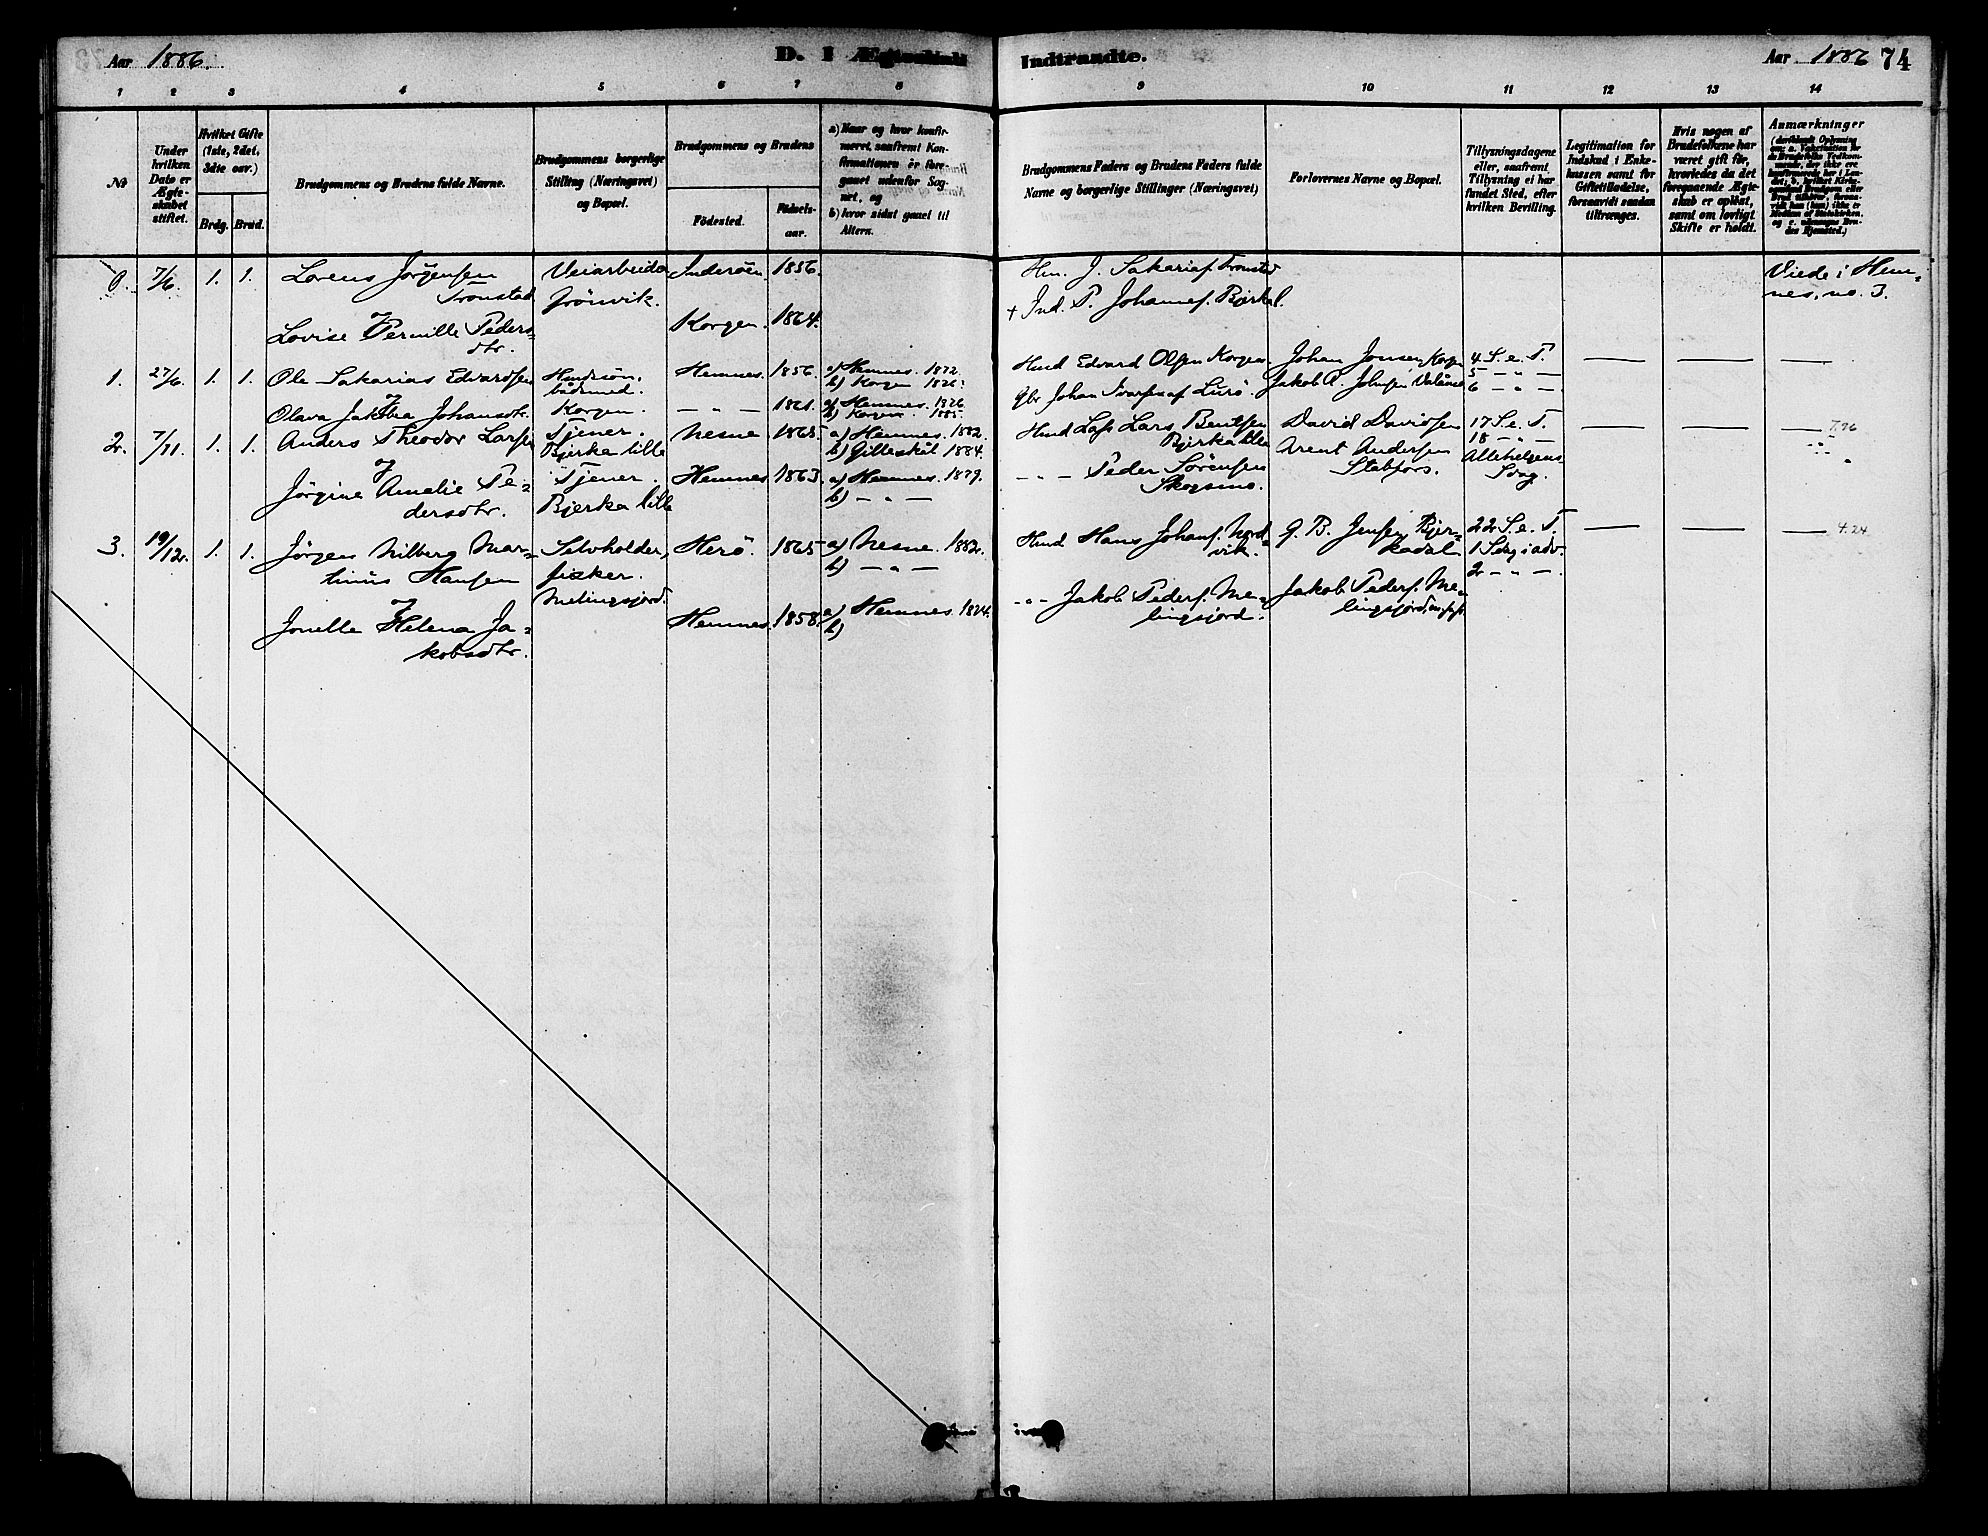 Aar 1886.
D. I Ægteskab
Indtraadte.
Aar 1886
74
1 2 3 4 5 6 7 8 9 10 11 12 13 14
№
Under hvilken Dato er Ægteskabet stiftet.
Hvilket Gifte (1ste, 2det, 3dte osv.)
Brdg. Brud.
Brudgommens og Brudens fulde Navne.
Brudgommens borgerlige Stilling (Næringsvei) og Bopæl.
Brudgommens og Brudens
Födested.
Födselsaar.
a) Naar og hvor konfirmeret, saafremt Konfirmationen er foregaaet udenfor Sognet, og
b) hvor sidst gaaet til Alters.
Brudgommens Faders og Brudens Faders fulde Navne og borgerlige Stillinger (Næringsvei)
Forlovernes Navne og Bopæl.
Tillysningsdagene eller, saafremt Tillysning ei har fundet Sted, efter hvilken Bevilling.
Legitimation for Indskud i Enkekassen samt for Giftetilladelse, forsaavidt saadan tiltrænges.
Hvis nogen af Brudefolkene har været gift før, hvorledes da det foregaaende Ægteskab er opløst, samt om lovligt Skifte er holdt.
Anmærkninger
0. 7/6. 1. 1. Lorens Jörgensen Tronstad
Veiarbeider Grönvik.
Inderöen 1856.
Hm. J. Sakarias. Tronstad
Viede i Hemnes, no. 3.
&
Lovise Pernille Pedersdtr.
Korgen. 1864.
+ Ind. P. Johannes. Bjerkad.
1. 27/6. 1. 1. Ole Sakarias Edvardsen
Husdsön, bådsmed. Korgen.
Hemnes. 1856
a) Hemnes. 1872.
b) Korgen
Husd Edvard Olsen Korgen.
Johan Jonsen Korgen
4 S. e. T.
5 – " –
&
Olava Jakobea Johansdtr.
– " – 1861.
a) Hemnes. 1876
b) Korgen. 1885.
gbr Johan Ivarsen af Lurö.
Jakob A. Johnsen
6 – " –
2. 7/11. 1. 1. Anders Theodor Larsen
Tjener. Bjerka lille
Nesne 1865.
a) Hemnes. 1882.
b) Gilleskål 1884.
Husd Lars Bentsen Bjerka lille
David Davidsen
Arent Andersen Stabfors.
17 S. e. T.
18 – " –
Allehelgens Sdag.
7.76
&
Jörgine Amalie Pedersdtr.
Tjener. Bjerka lille
Hemnes 1863.
a) Hemnes. 1879.
b) – " –
– " – Peder Sörensen Skogsmo.
3. 19/12. 1. 1. Jörgen Nilberg Martinus Hansen
Selvholder, fisker. Melingsjord.
Herö. 1865
a) Nesne. 1882.
b) – " –
Husd Hans Johans. Nordvik.
G. B. Jensen Bjerkadal
22 S. e. T.
1 Sdg i adv.
2 – " –
4.24
&
Jonelle Helena Jakobsdtr.
Hemnes. 1858.
a) Hemnes. 1874.
b)
– " – Jakob Peders. Melingsjord.
Jakob Peders. Melingsfjord